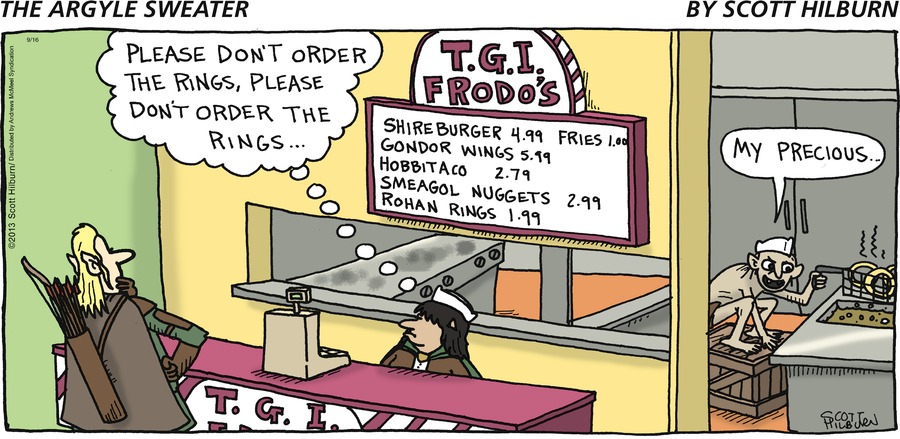 THE ARGYLE SWEATER
BY SCOTT HILBURN
9/16
©2013 Scott Hilburn/ Distributed by Andrews McMeel Syndication
PLEASE DON'T ORDER
THE RINGS, PLEASE
DON'T ORDER THE
RINGS...
T.G.I.
FRODO'S
SHIREBURGER 4.99 FRIES 1.00
GONDOR WINGS 5.99
HOBBITACO 2.79
SMEAGOL NUGGETS 2.99
ROHAN RINGS 1.99
MY PRECIOUS...
T.G.I.
SCOTT
HILBURN